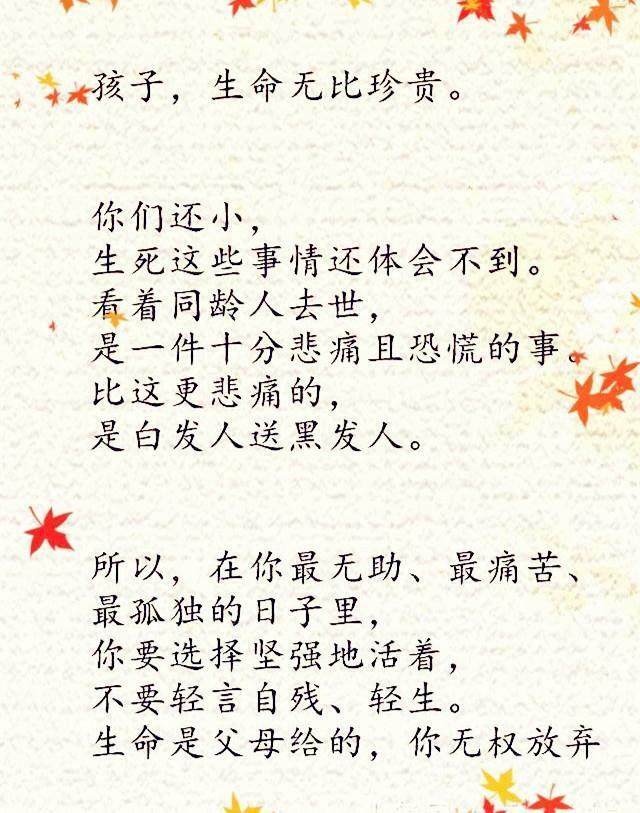 孩子，生命无比珍贵。
你们还小，
生死这些事情还体会不到。
看着同龄人去世，
是一件十分悲痛且恐慌的事。
比这更悲痛的，
是白发人送黑发人。
所以，在你最无助、最痛苦、
最孤独的日子里，
你要选择坚强地活着，
不要轻言自残、轻生。
生命是父母给的，你无权放弃